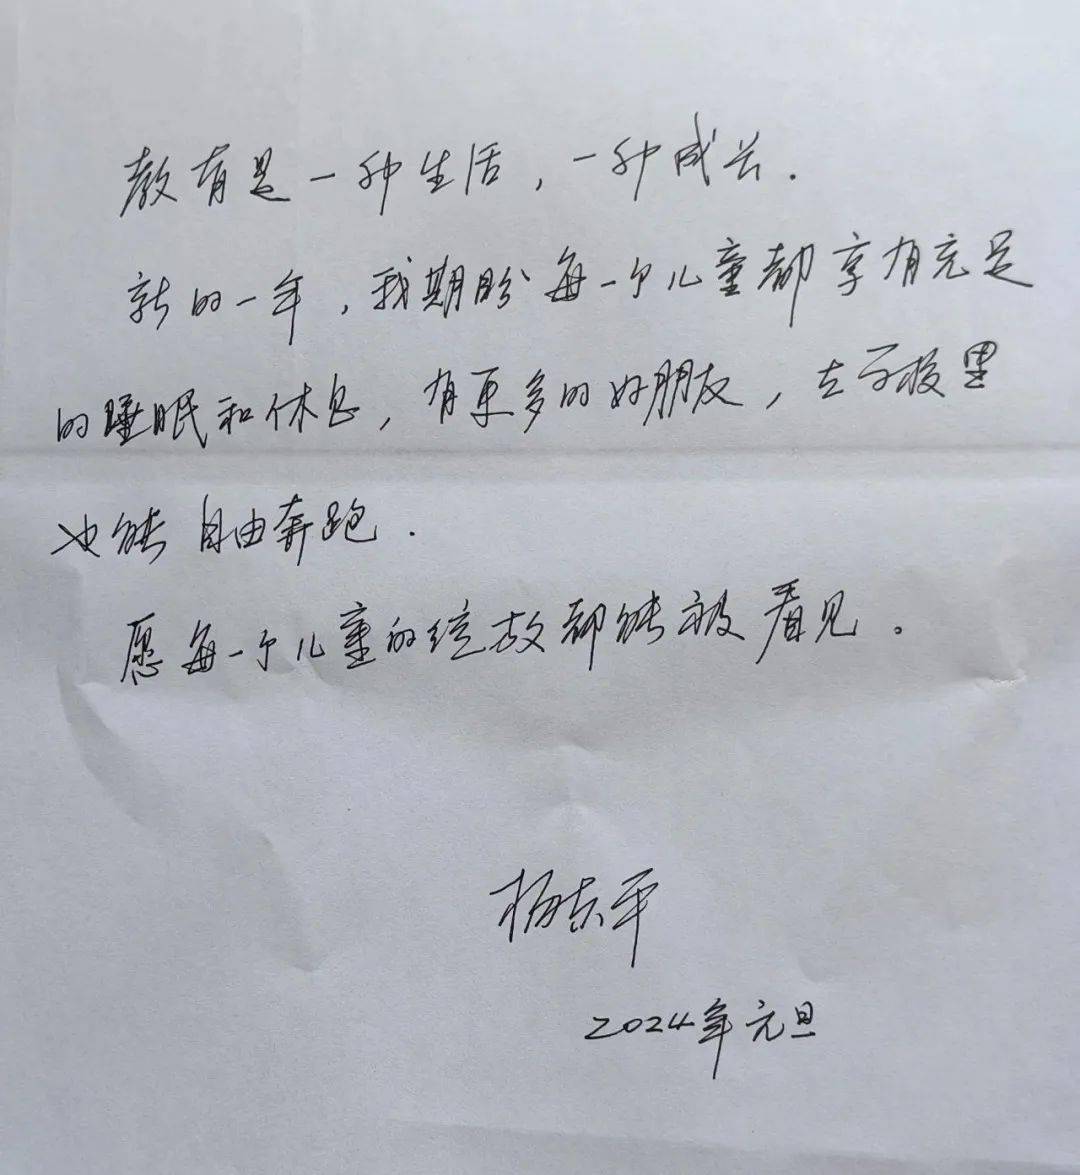 教育是一种生活，一种成长.
新的一年，我期盼每一个儿童都享有充足
的睡眠和休息，有更多的好朋友，在学校里
也能自由奔跑.
愿每一个儿童的绽放都能被看见。
杨东平
2024年元旦